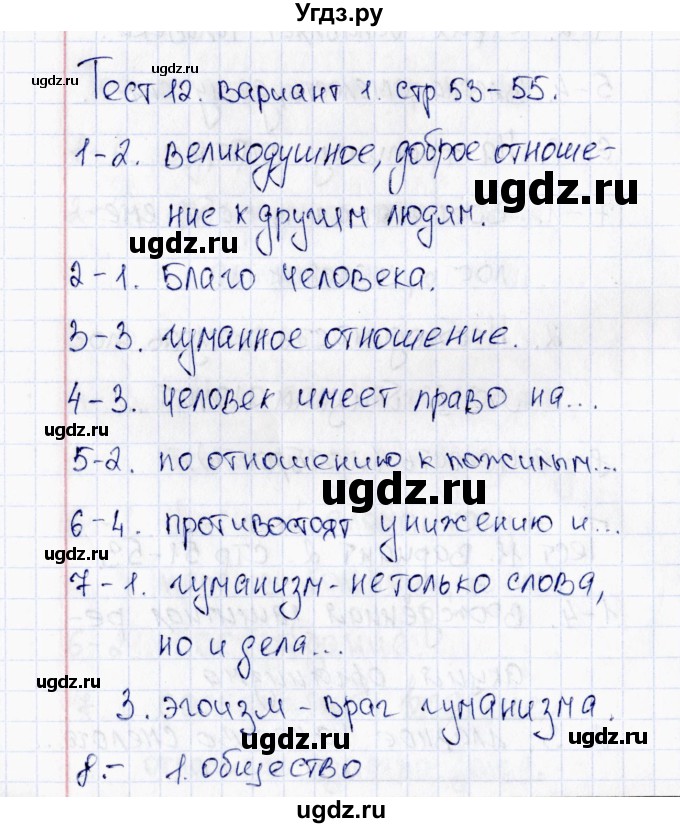 Угдз.ру
Тест 12. Вариант 1. стр 53-55.
1-2. Великодушное, доброе отноше-
ние к другим людям.
2-1. Благо человека.
3-3. гуманное отношение.
4-3. Человек имеет право на...
5-2. по отношению к пожилым...
6-4. противостоят унижению и...
7-1. гуманизм - не только слова,
но и дела...
3. эгоизм - враг гуманизма.
8.- 1. общество
ugdz.ru
ugdz.ru
ugdz.ru
ugdz.ru
ugdz.ru
ugdz.ru
ugdz.ru
ugdz.ru
ugdz.ru
ugdz.ru
ugdz.ru
ugdz.ru